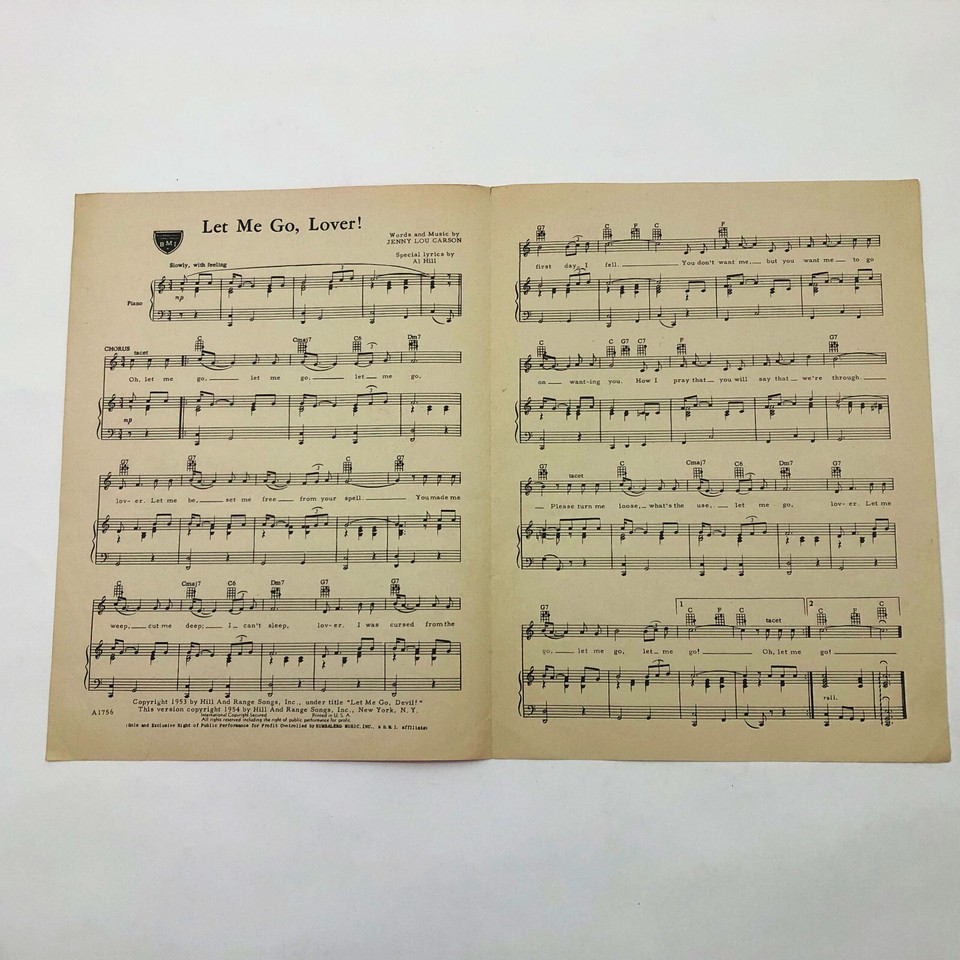 Let Me Go, Lover!
BMI
Words and Music by
JENNY LOU CARSON
Special lyrics by
Al Hill
Slowly, with feeling
3
Piano
mp
CHORUS
tacet
G Cmaj7 C6 Dm7
3
Oh, let me go, let me go, let me go,
3
mp
G7 G7 C G7
3
lov- er. Let me be, set me free from your spell. You made me
3
C Cmaj7 C6 Dm7 G7 G7
weep, cut me deep; I can't sleep, lov- er. I was cursed from the
3
A1756
Copyright 1953 by Hill And Range Songs, Inc., under title "Let Me Go, Devil!"
This version copyright 1954 by Hill And Range Songs, Inc., New York, N.Y.
International Copyright Secured Printed in U. S. A.
All rights reserved including the right of public performance for profit.
G7 C F C F
3
first day I fell. You don't want me, but you want me to go
3
C C G7 C7 F G7
on want-ing you. How I pray that you will say that we're through.
3
G7 tacet C Cmaj7 C6 Dm7 G7
3
Please turn me loose, what's the use, let me go, lov- er. Let me
3
G7 1 C F C tacet 2 C F C
3
go, let me go, let me go! Oh, let me go!
3
rall.